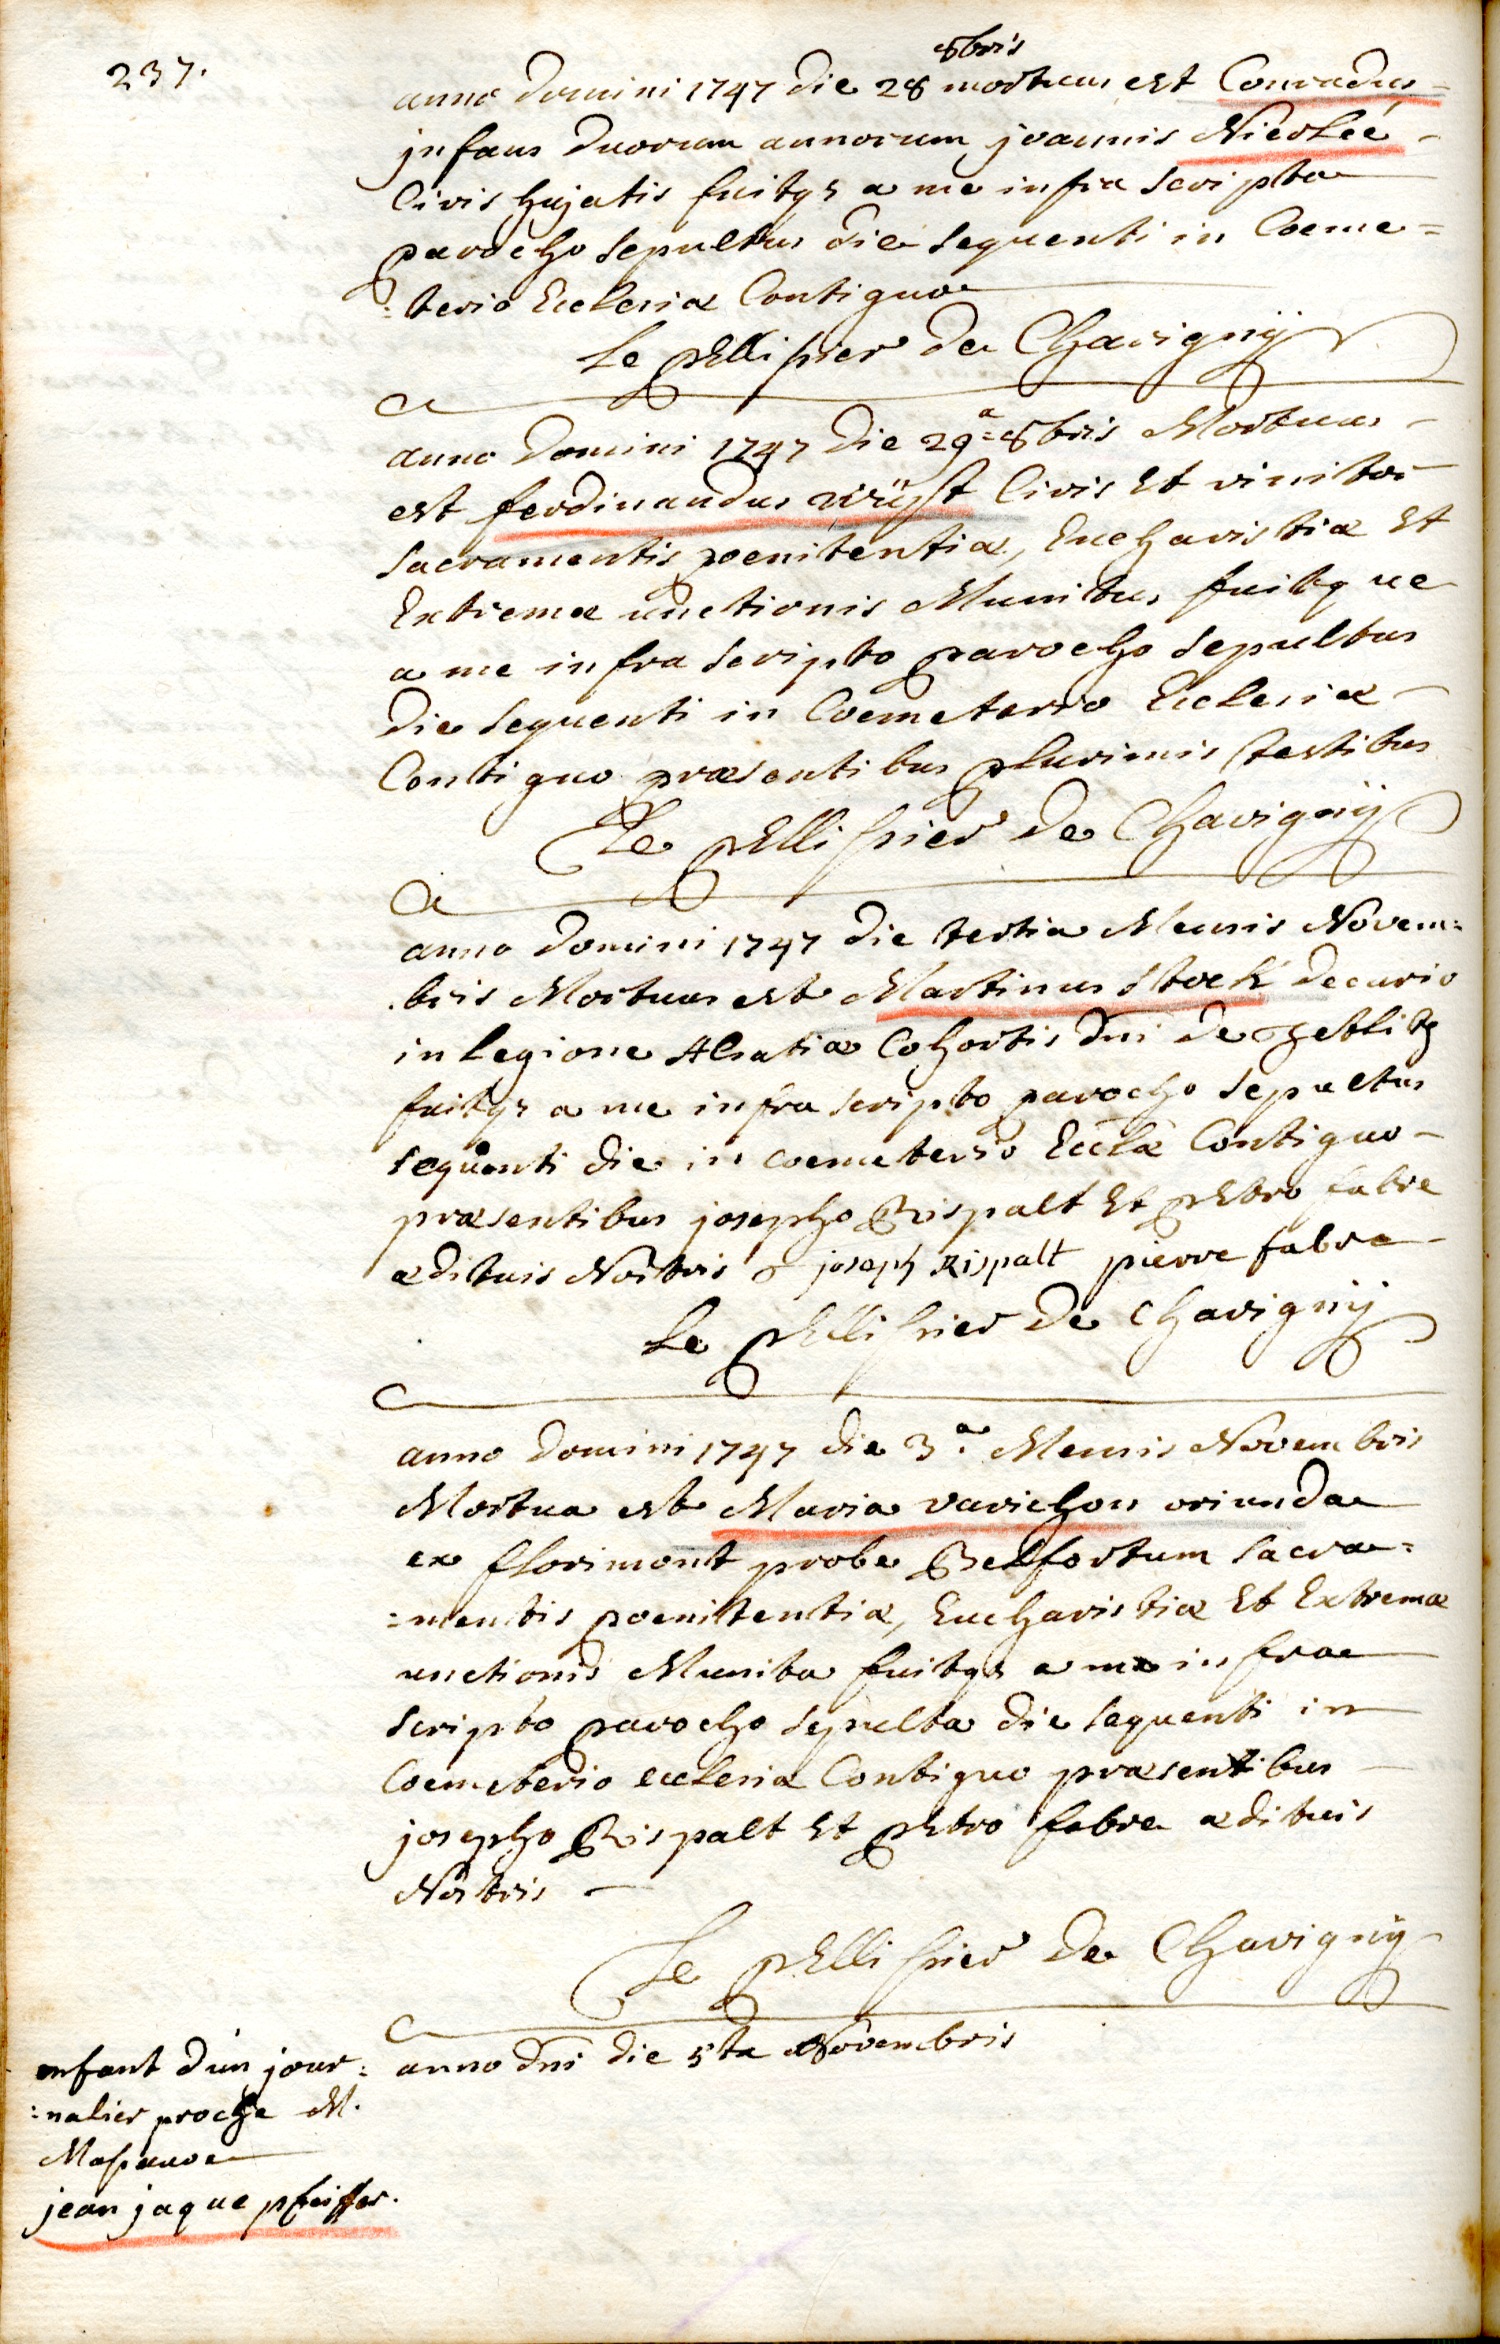 237.
8bris
anno domini 1747 die 28 mortuus est Conradus
jnfans duorum annorum joannis
Civis hujatis fuitq3 a me infra scripto
parocho sepultus die sequenti in Coeme=
:terio Ecclesiæ Contiguo
Le pEllissier de Chavignÿ
anno Domini 1747 die 29a 8bris Mortuus
est ferdinandus wüst Civis Et vinitor
sacramentis poenitentiæ, Eucharistiæ Et
Extremæ unctionis Munitus fuitque
a me infra scripto parocho sepultus
die sequenti in Coemeterio Ecclesiæ
Contiguo præsentibus plurimis testibus
Le pEllissier de Chavignÿ
anno domini 1747 die tertia Mensis Novem=
.bris Mortuus est Martinus stoek decurio
in legione Alsatiæ Cohortis dni de
fuitq3 a me infra scripto parocho sepultus
sequenti die in coemeterio Ecclæ Contiguo
præsentibus josepho Rispalt Et pEtro fabre
ædituis Nostris joseph Rispalt pierre fabre
Le pEllissier de Chavignÿ
anno domini 1747 die 3a. Mensis Novembris
Mortua est Maria varichon oriunda
ex florimont probe Belfortum sacra=
=mentis poenitentiæ, Eucharistiæ Et Extremæ
unctionis Munita fuitq3 a me infra
scripto parocho sepulta die sequenti in
Coemeterio ecclesiæ Contiguo præsentibus
josepho Rispalt Et pEtro fabre ædituis
Nostris
Le pEllissier de Chavignÿ
anno dni die 5ta Novembris
enfant d'un jour=
:nalier proche M.
jean jaque pfeiffer.